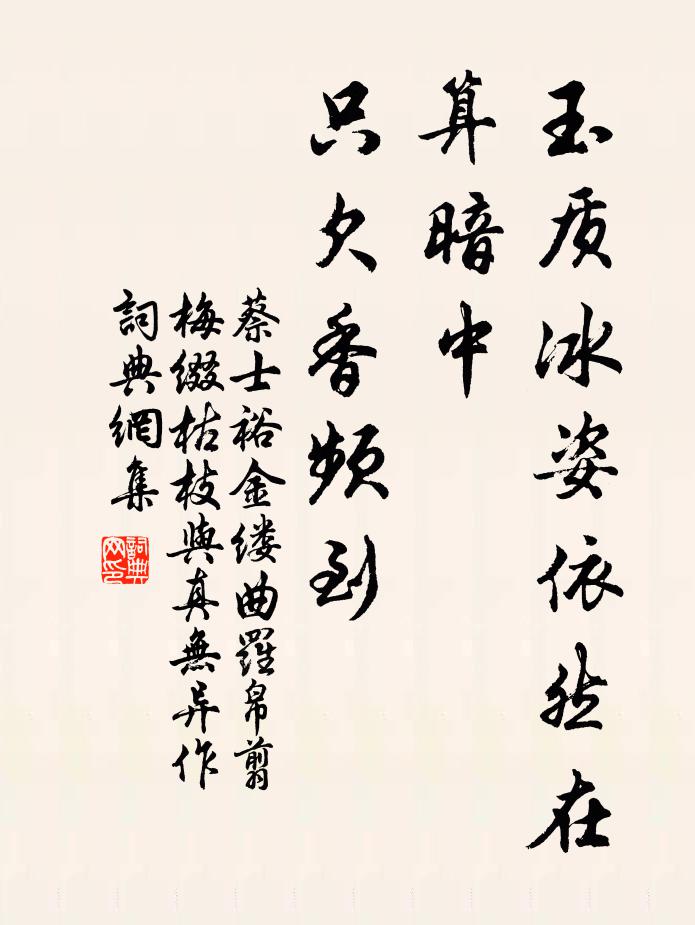 玉质冰姿依然在
算暗中
只欠香频到
蔡士裕金缕曲羅帛剪
梅缀枯枝與真無异作
詞典網集
詞典
网印